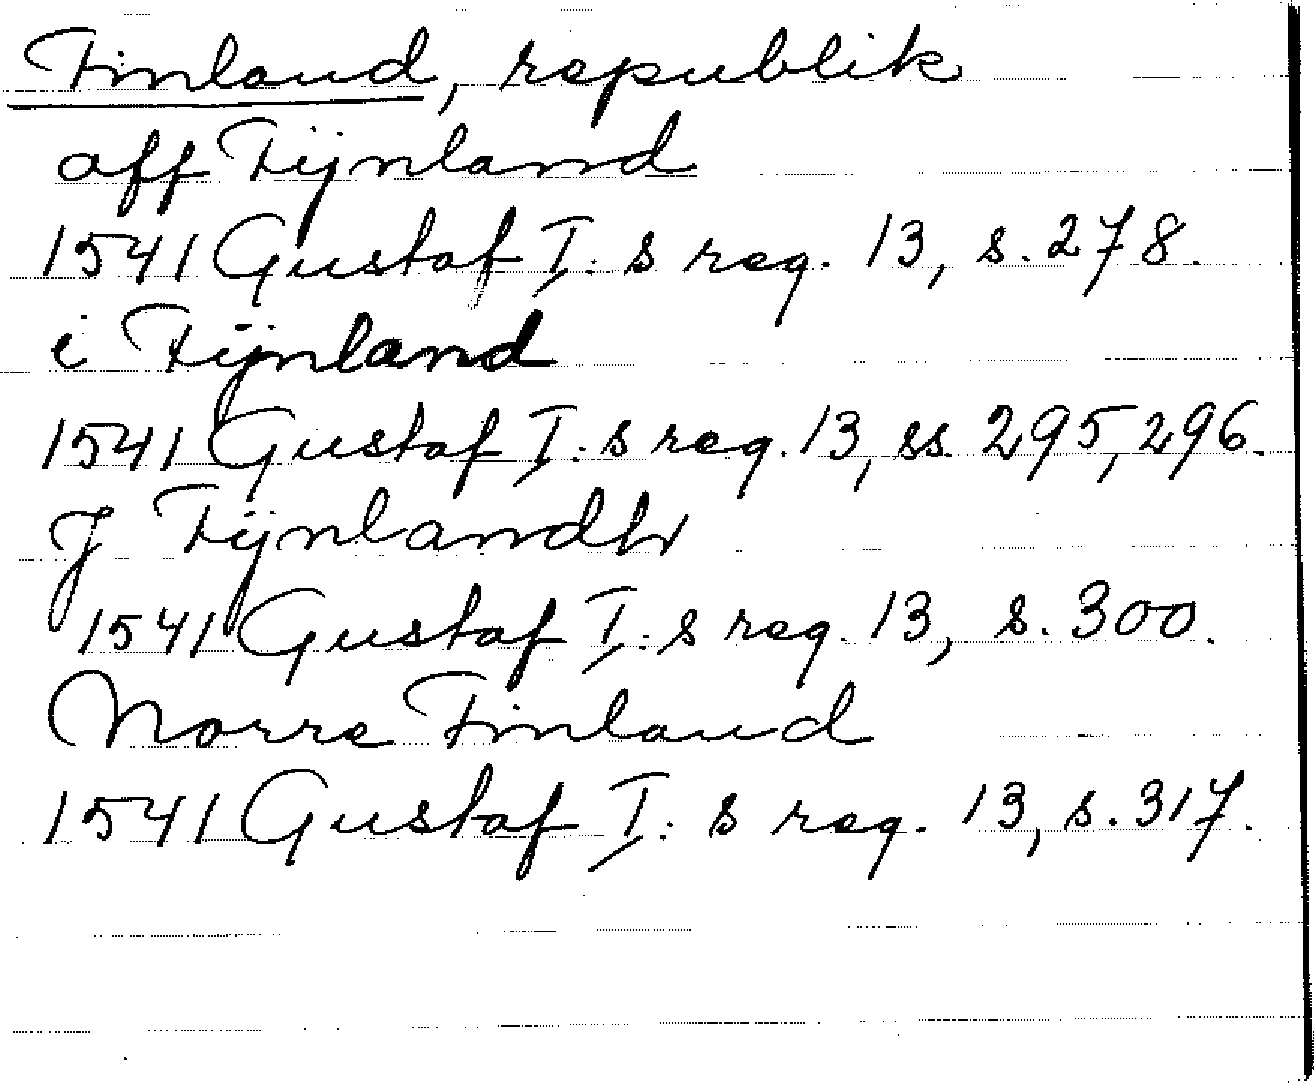 Finland, republik
aff Fijnland
1541 Gustaf I: s reg. 13, s. 278.
i Fijnland
1541 Gustaf I: s reg. 13, ss. 295, 296.
J Fijnlandh
1541 Gustaf I: s reg. 13, s. 300.
Norre Finland
1541 Gustaf I: s reg. 13, s. 317.